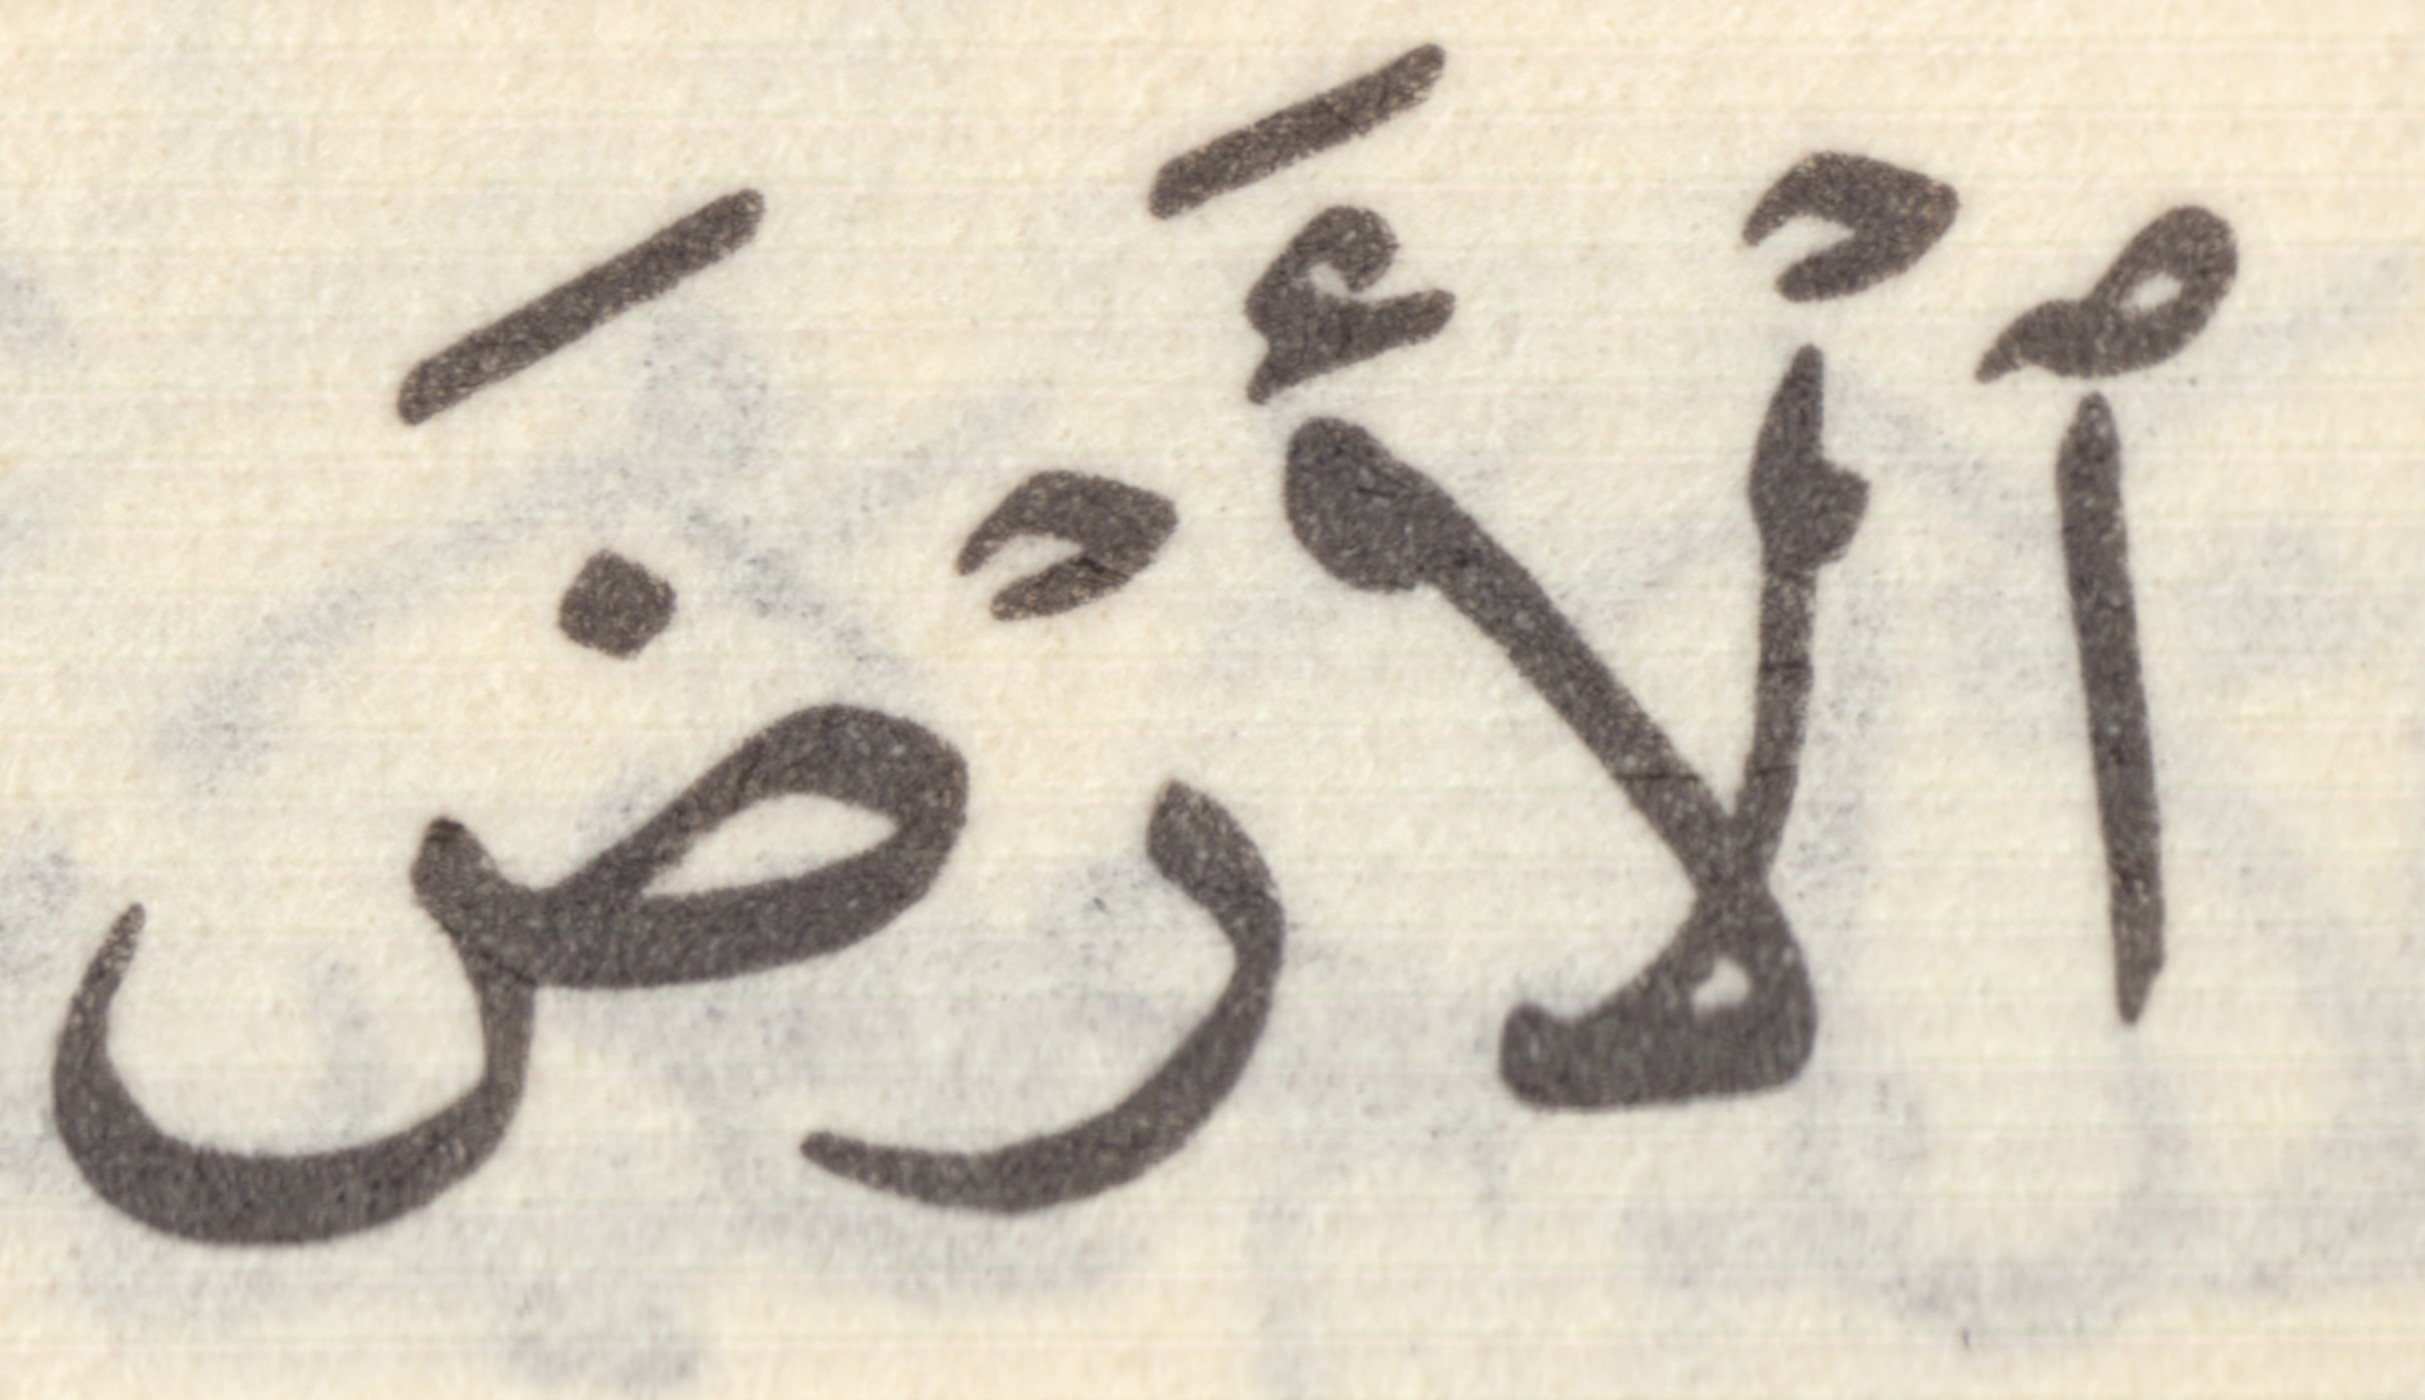 ٱلۡأَرۡضَ